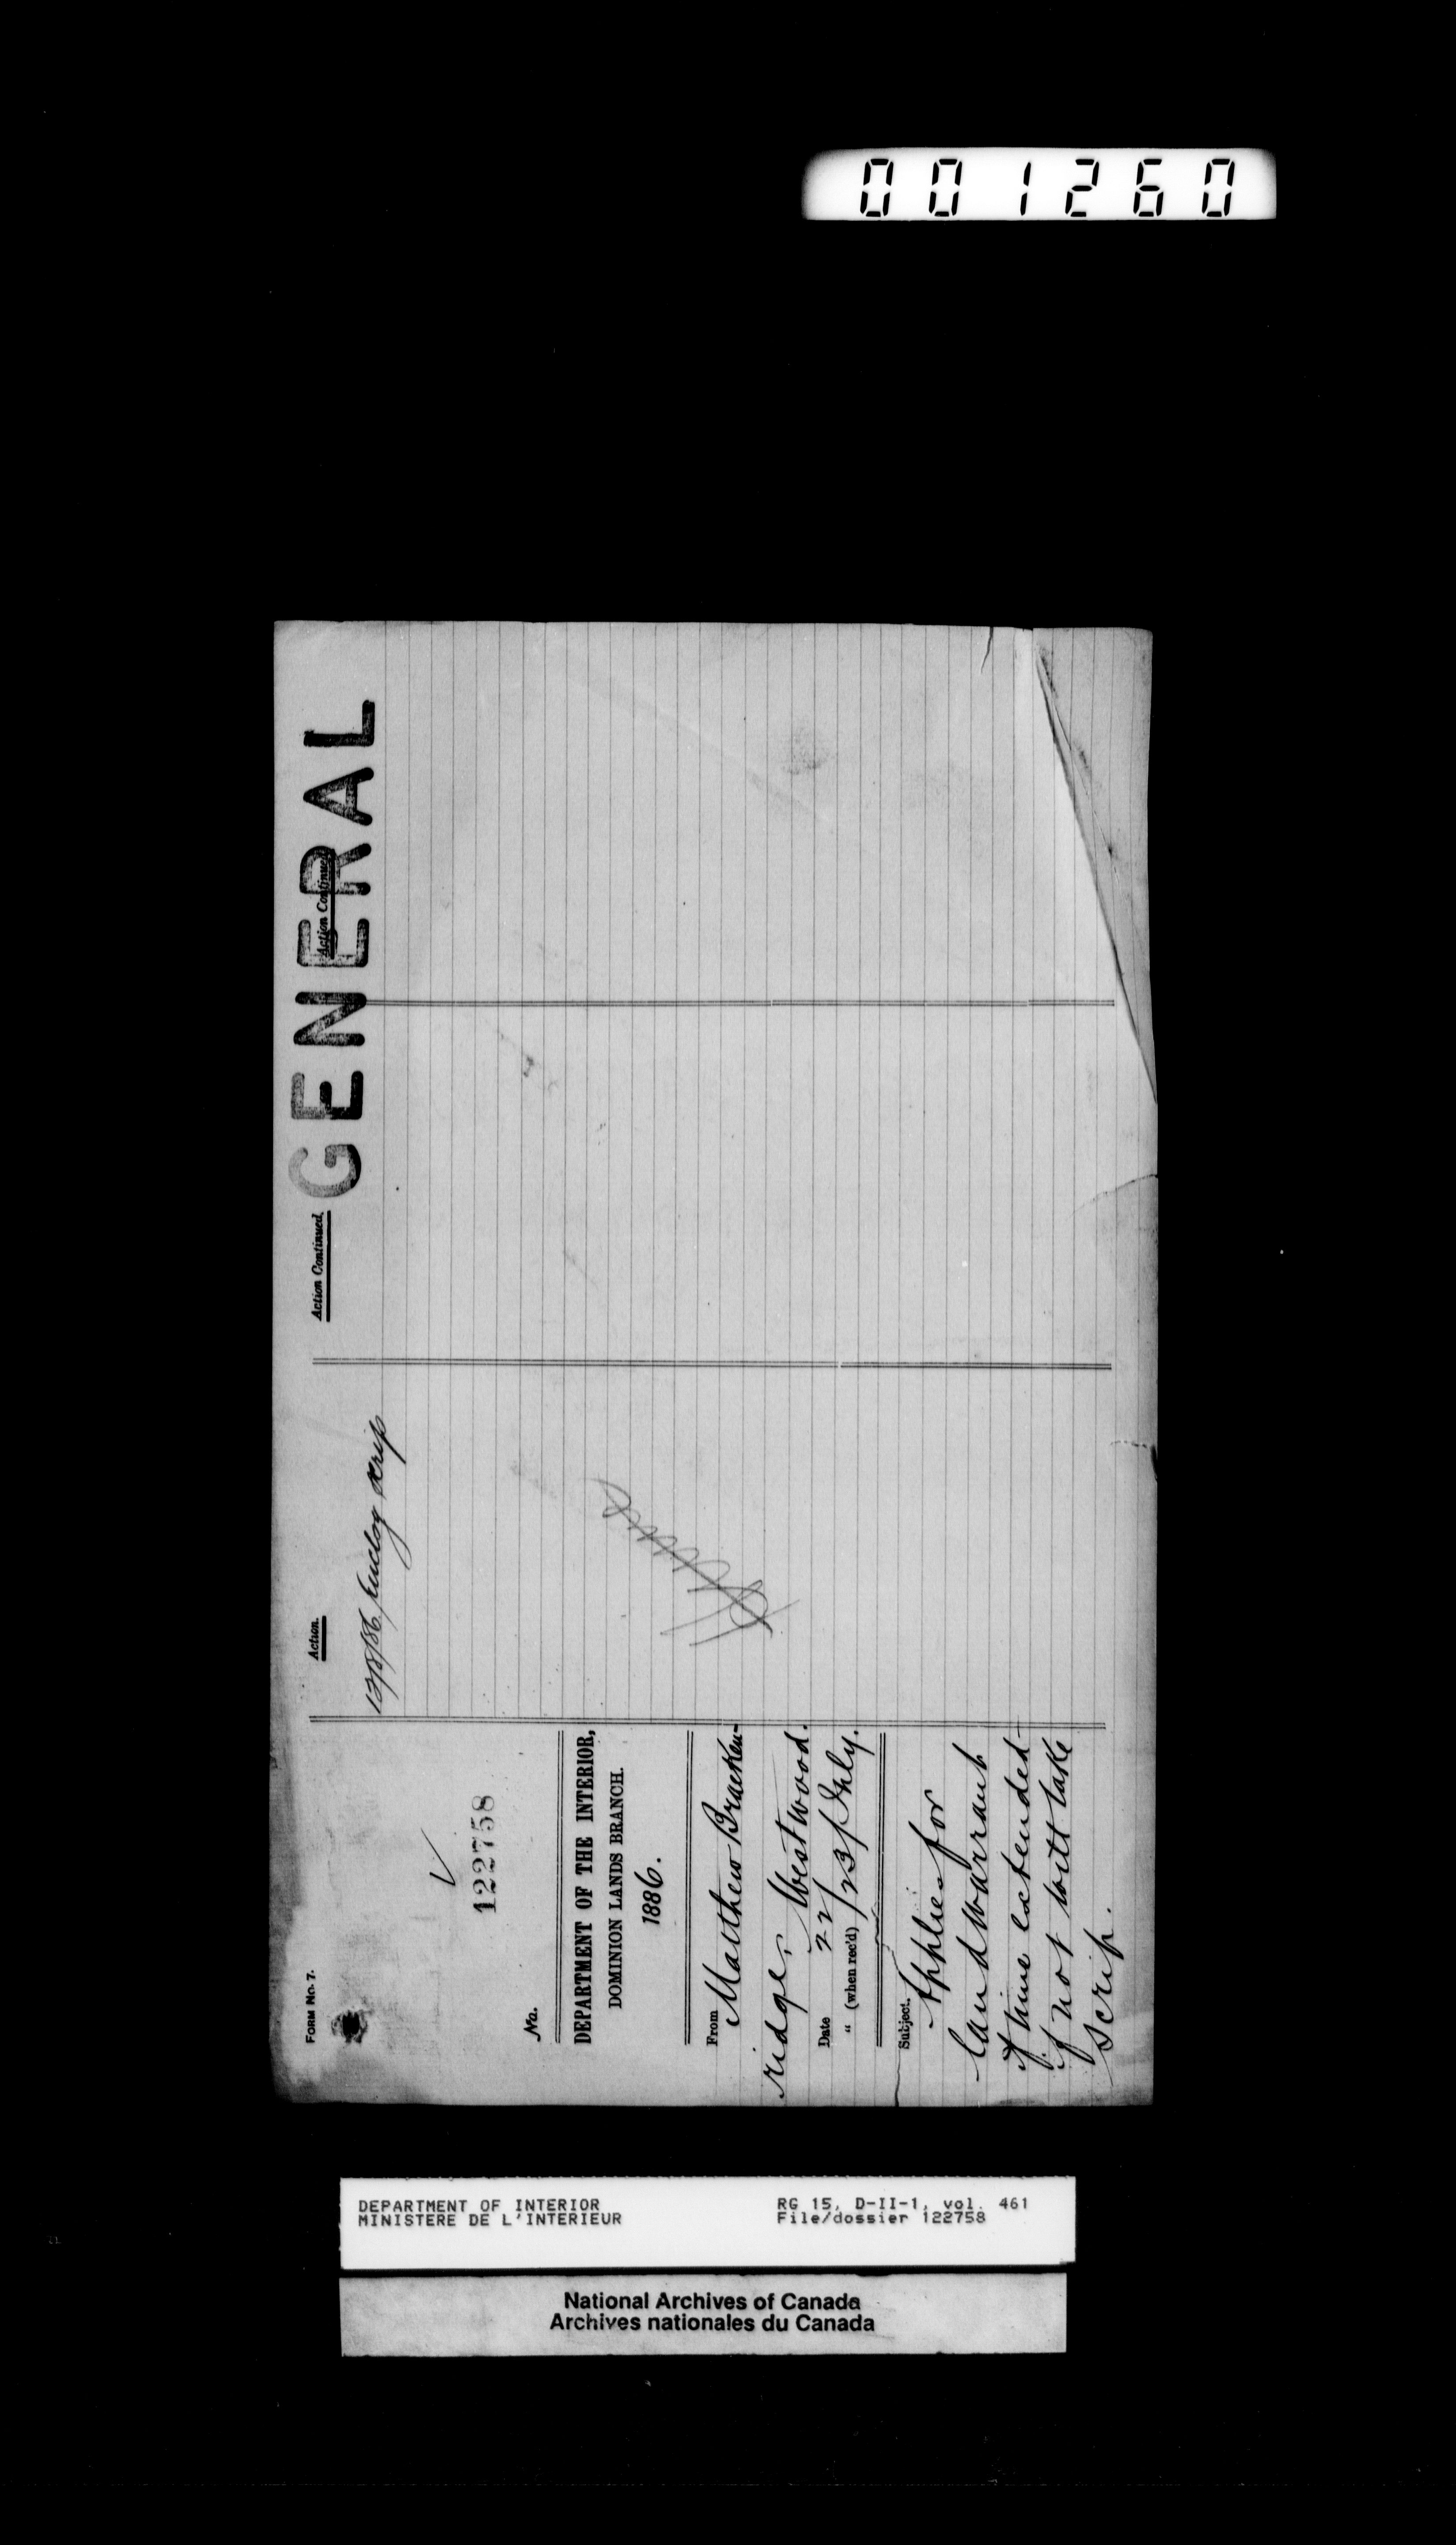 001260
FORM No. 7.
122758
No.
DEPARTMENT OF THE INTERIOR,
DOMINION LANDS BRANCH.
1886.
From Matthew Bracken-
ridge, Westwood.
Date 22/
" (when rec'd) /23/July.
Subject. Applies for
land warrant
if time extended
if not will take
scrip.
Action.
13/8/86 Enclog scrip
Action Continued.
GENERAL
Action Continued.
DEPARTMENT OF INTERIOR
MINISTERE DE L'INTERIEUR
RG 15, D-II-1, vol. 461
File/dossier 122758
National Archives of Canada
Archives nationales du Canada